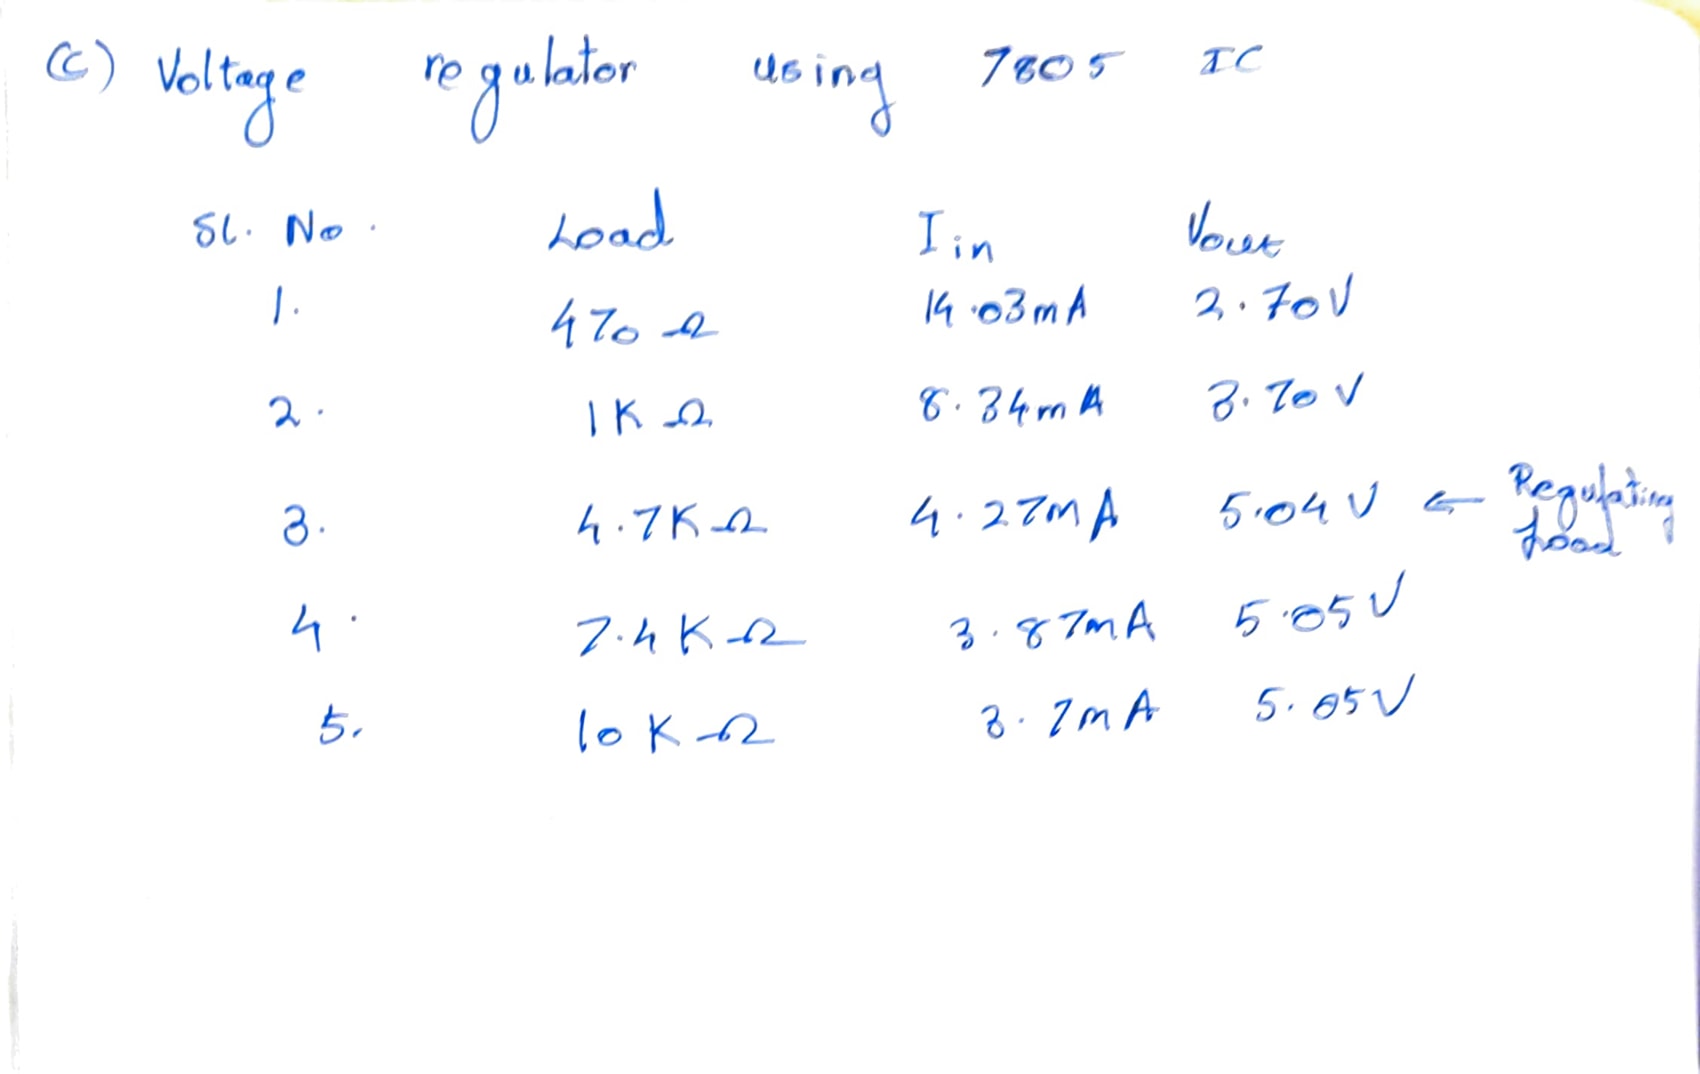 (C) Voltage regulator using 7805 IC
Sl. No. Load Iin Vout
1. 470 Ω 14.03mA 2.70V
2. 1K Ω 8.34mA 3.70V
3. 4.7K Ω 4.27mA 5.04V ← Regulating Load
4. 7.4K Ω 3.87mA 5.05V
5. 10K Ω 3.7mA 5.05V